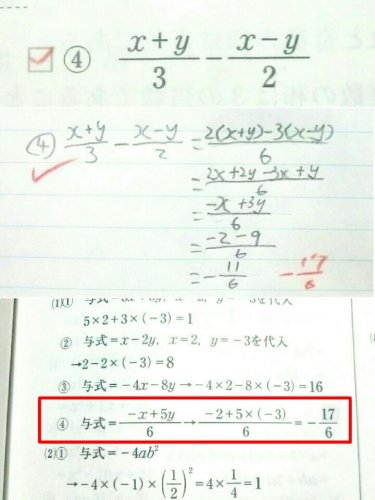 ④ (x+y)/3 − (x−y)/2
(4) (x+y)/3 − (x−y)/2 = (2(x+y)−3(x−y))/6
= (2x+2y−3x+y)/6
= (−x+3y)/6
= (−2−9)/6
= −11/6 −17/6
5×2+3×(−3)=1
② 与式=x−2y, x=2, y=−3を代入
→2−2×(−3)=8
③ 与式=−4x−8y→−4×2−8×(−3)=16
④ 与式=(−x+5y)/6→(−2+5×(−3))/6=−17/6
(2)① 与式=−4ab²
→−4×(−1)×(1/2)²=4×1/4=1